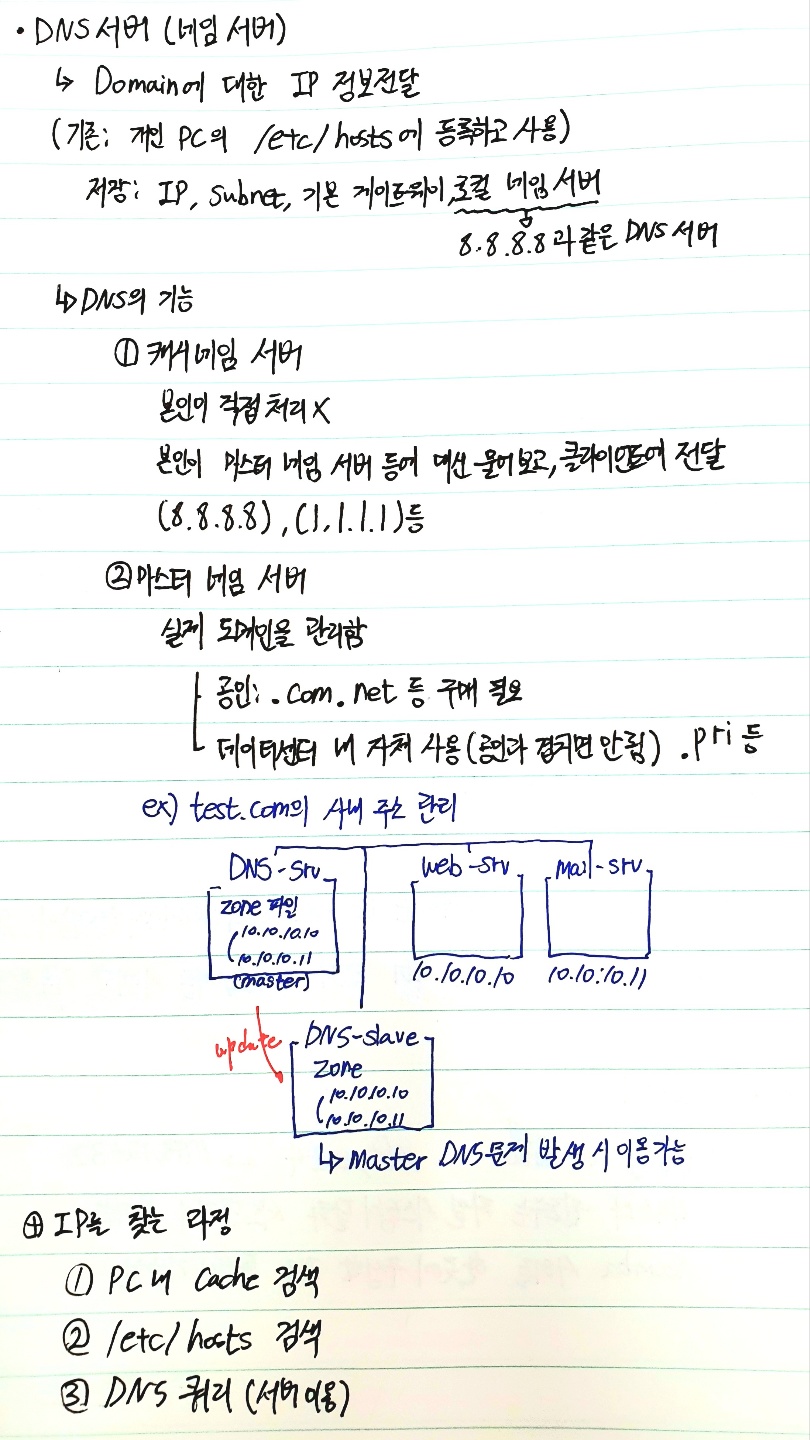 • DNS 서버 (네임 서버)
↳ Domain에 대한 IP 정보전달
(기존: 개인 PC의 /etc/hosts에 등록하고 사용)
저장: IP, Subnet, 기본 게이트웨이, 로컬 네임 서버
8.8.8.8과 같은 DNS 서버
↳ DNS의 기능
① 캐시 네임 서버
본인이 직접 처리 X
본인이 마스터 네임 서버 등에 대신 물어보고, 클라이언트에 전달
(8.8.8.8), (1.1.1.1)등
② 마스터 네임 서버
실제 도메인을 관리함
공인: .com .net 등 구매 필요
데이터센터 내 자체 사용 (공인과 겹치면 안됨) .pri 등
ex) test.com의 사내 주소 관리
DNS-srv web-srv mail-srv
zone 파일
10.10.10.10
10.10.10.11
(master) 10.10.10.10 10.10.10.11
update DNS-slave
zone
10.10.10.10
10.10.10.11
↳ Master DNS 문제 발생 시 이용가능
⊕ IP를 찾는 과정
① PC내 Cache 검색
② /etc/hosts 검색
③ DNS 쿼리 (서버이용)